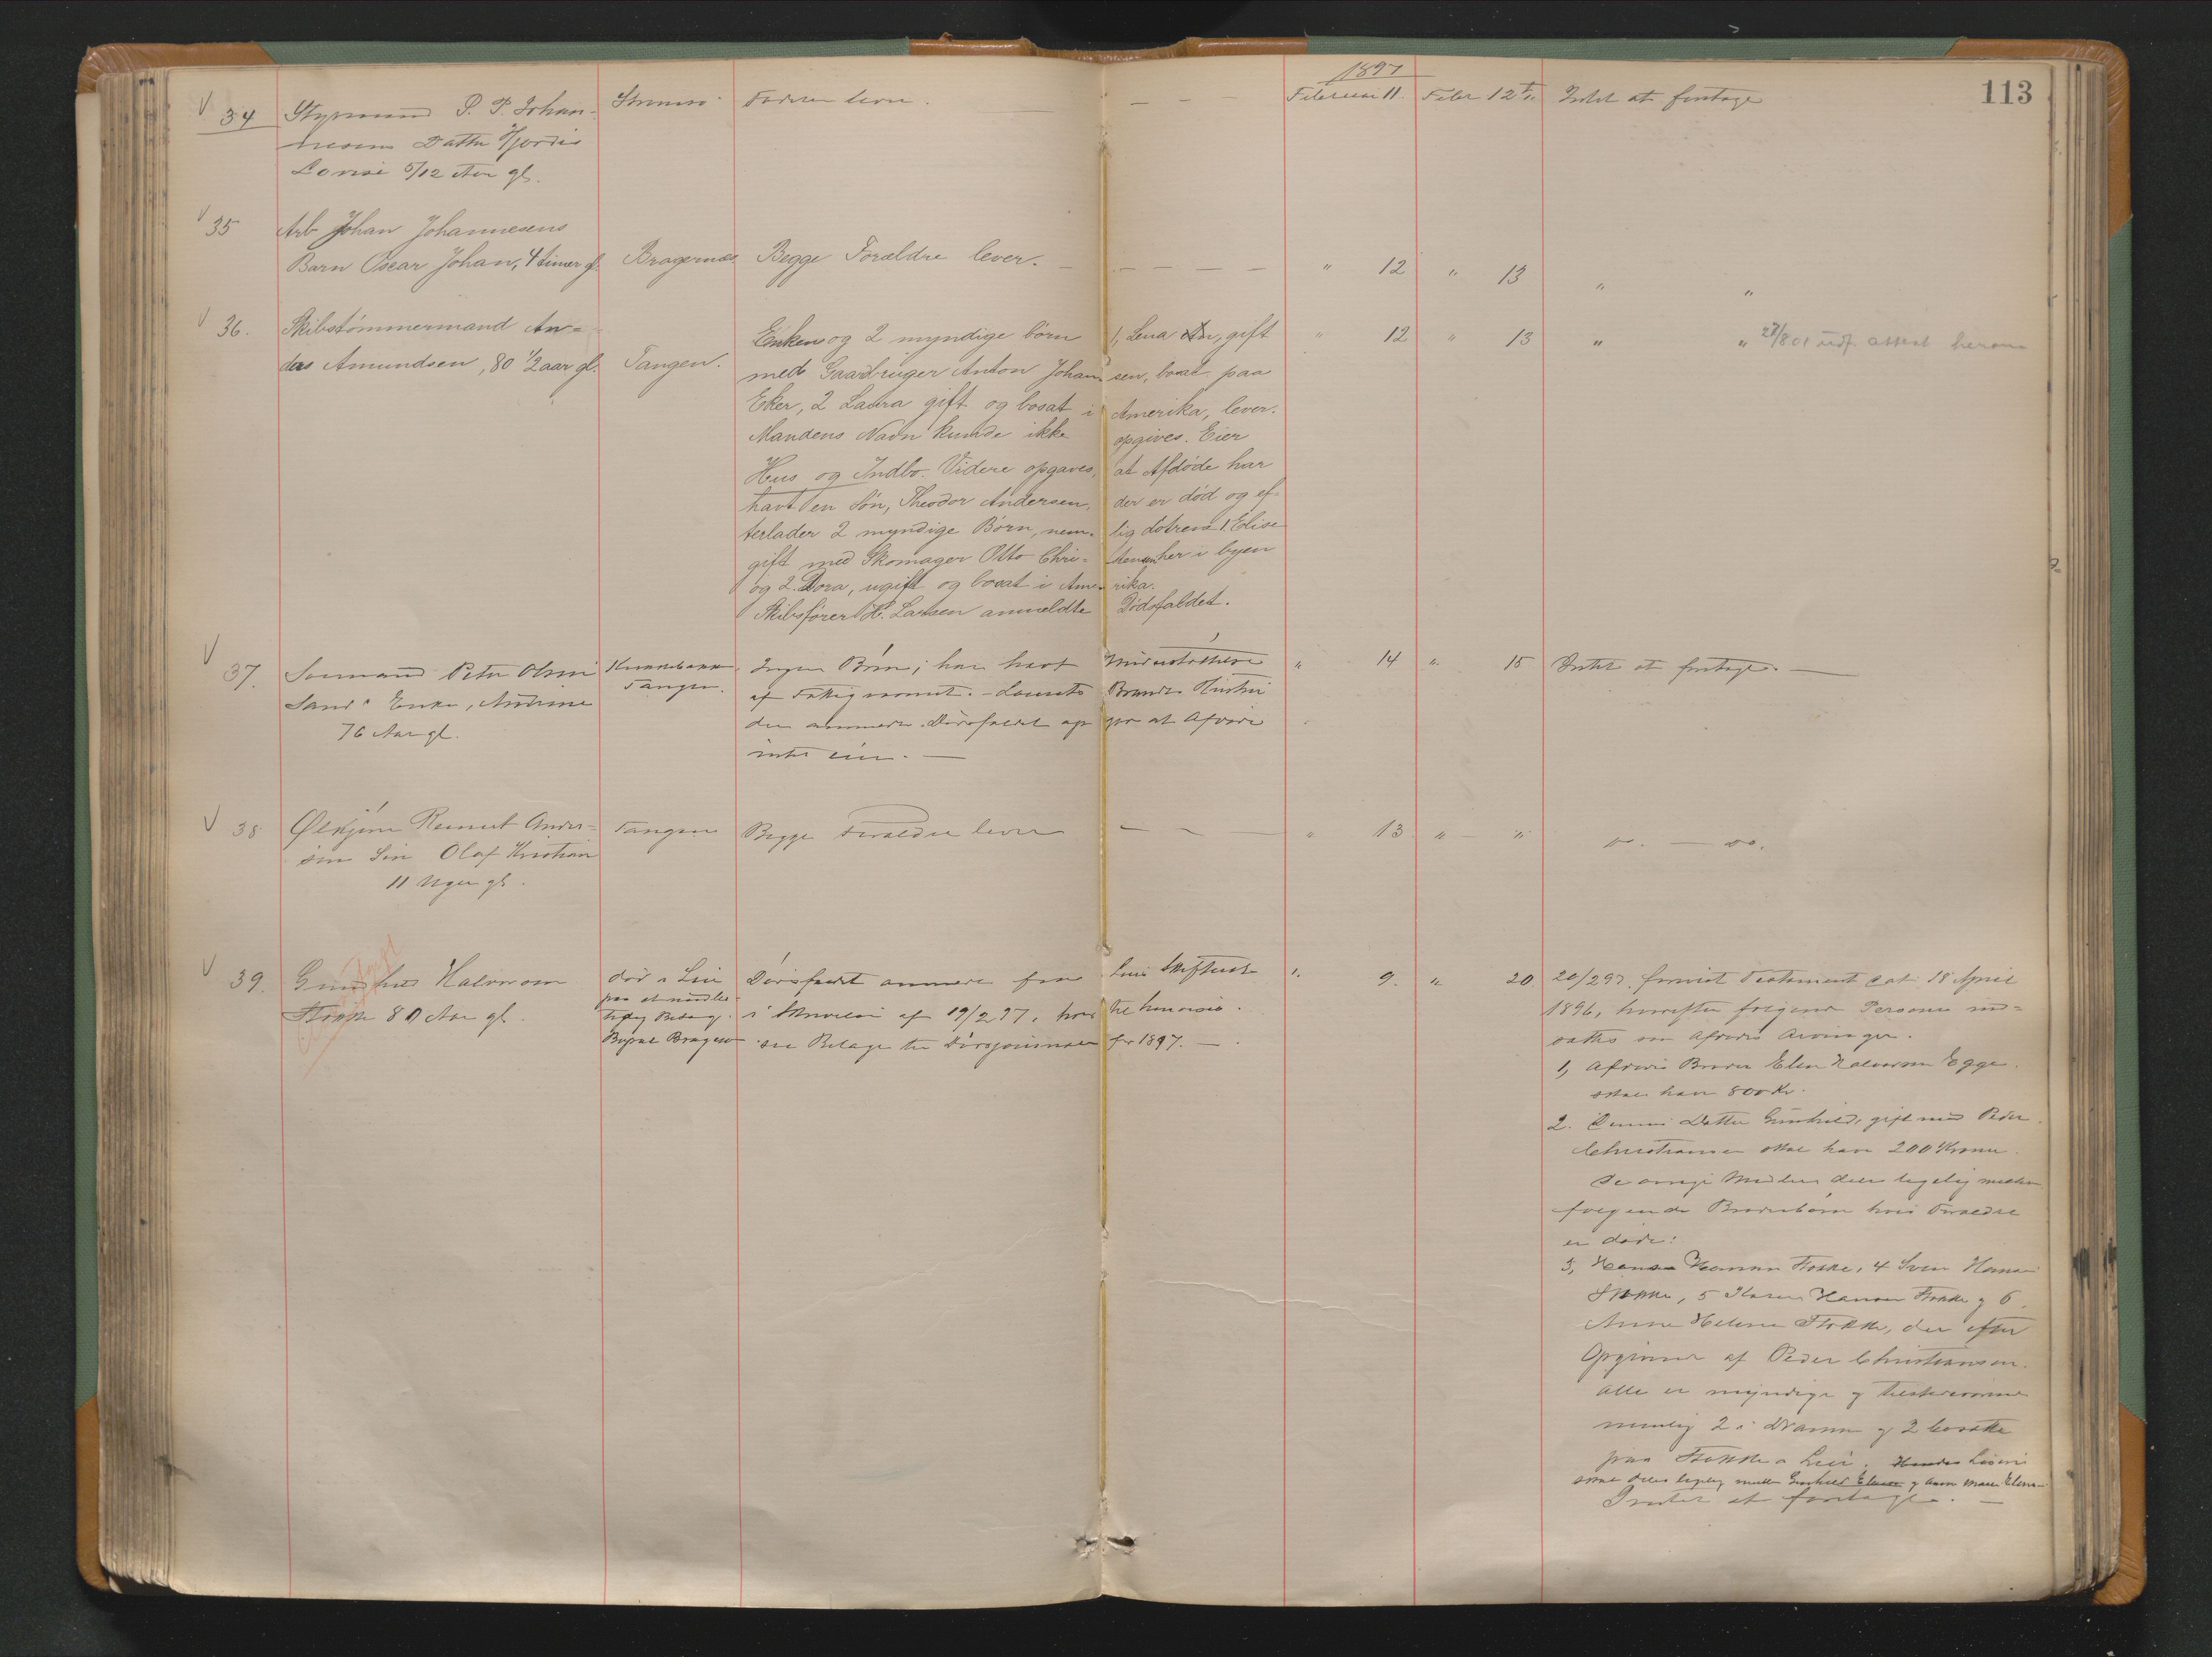 113
1897
34 Styrmand P. P. Johan- Strømsø Faderen lever. Februar 11. Febr 12 Intet at foretage
nesens Datter Hjordis
Lovise 5/12 Aar gl.
35 Arb Johan Johannesens
Barn Oscar Johan, 4 timer gl. Bragernæs Begge Forældre lever. " 12 " 13 " "
36. Skibstømmermand An-
ders Amundsen, 80 1/2 aar gl. Tangen.
Enken og 2 myndige børn 1, Lena, gift " 12 " 13 " " 27/8 01 udf. attest herom
med Gaardbruger Anton Johansen, bosat paa
Eker, 2 Laura gift og bosat i Amerika, lever.
Mandens Navn kunde ikke opgives. Eier
Hus og Indbo. Videre opgaves, at Afdøde har
havt en Søn, Theodor Andersen, der er død og ef-
terlader 2 myndige Børn, nem- lig døtrene 1 Elise
gift med Skomager Otto Chri- stensen her i byen
og 2. Dora, ugift og bosat i Ame- rika.
Skibsfører H. Larsen anmeldte Dødsfaldet.
37. Sømand Peter Olsen Tangen. Ingen Børn; har havt Understøttelse " 14 " 15 Intet at foretage.
Sand's Enke, Andrine af Fattigvæsenet. - Hustru
76 Aar gl. der anmeldte Dødsfaldet op gav at Afdøde
intet eier.
38 Andersen Tangen Begge Forældre lever " 13 " " do. do.
Søn Olaf Kristian
11 Uger gl.
39. Halvorsen død i Lier Dødsfaldet anmeldt fra Lier Skifteret " 9. " 20 20/2 97. Testament dat. 18 April
Stokke 80 Aar gl. i Skrivelse af 19/2 97, hvor til henvises.
Bopæl Bragernes se Bilage til Dødsjournalen for 1897.
1896, hvorefter følgende Personer ind-
sættes som Afdødes Arvinger.
1, Afdødes Broder Elen Halvorsen Egge
skal have 800 Kr.
2. Dennes Datter Gunhild, gift med Peder
Christiansen skal have 200 Kroner.
De øvrige Midler deles ligelig mellem
følgende Broderbørn hvis Forældre
er døde:
3, Hansen Stokke, 4 Sven Hansen
Stokke, 5 Karen Hansen Stokke og 6
Anne Helene Stokke, der efter
Opgivende af Peder Christiansen
alle er myndige og tilstedeværende
nemlig 2 i Drammen og 2 bosatte
paa Stokke i Lier.
skal deles ligelig mellem Gunhild Elense og Anne Marie Elense
Intet at foretage.